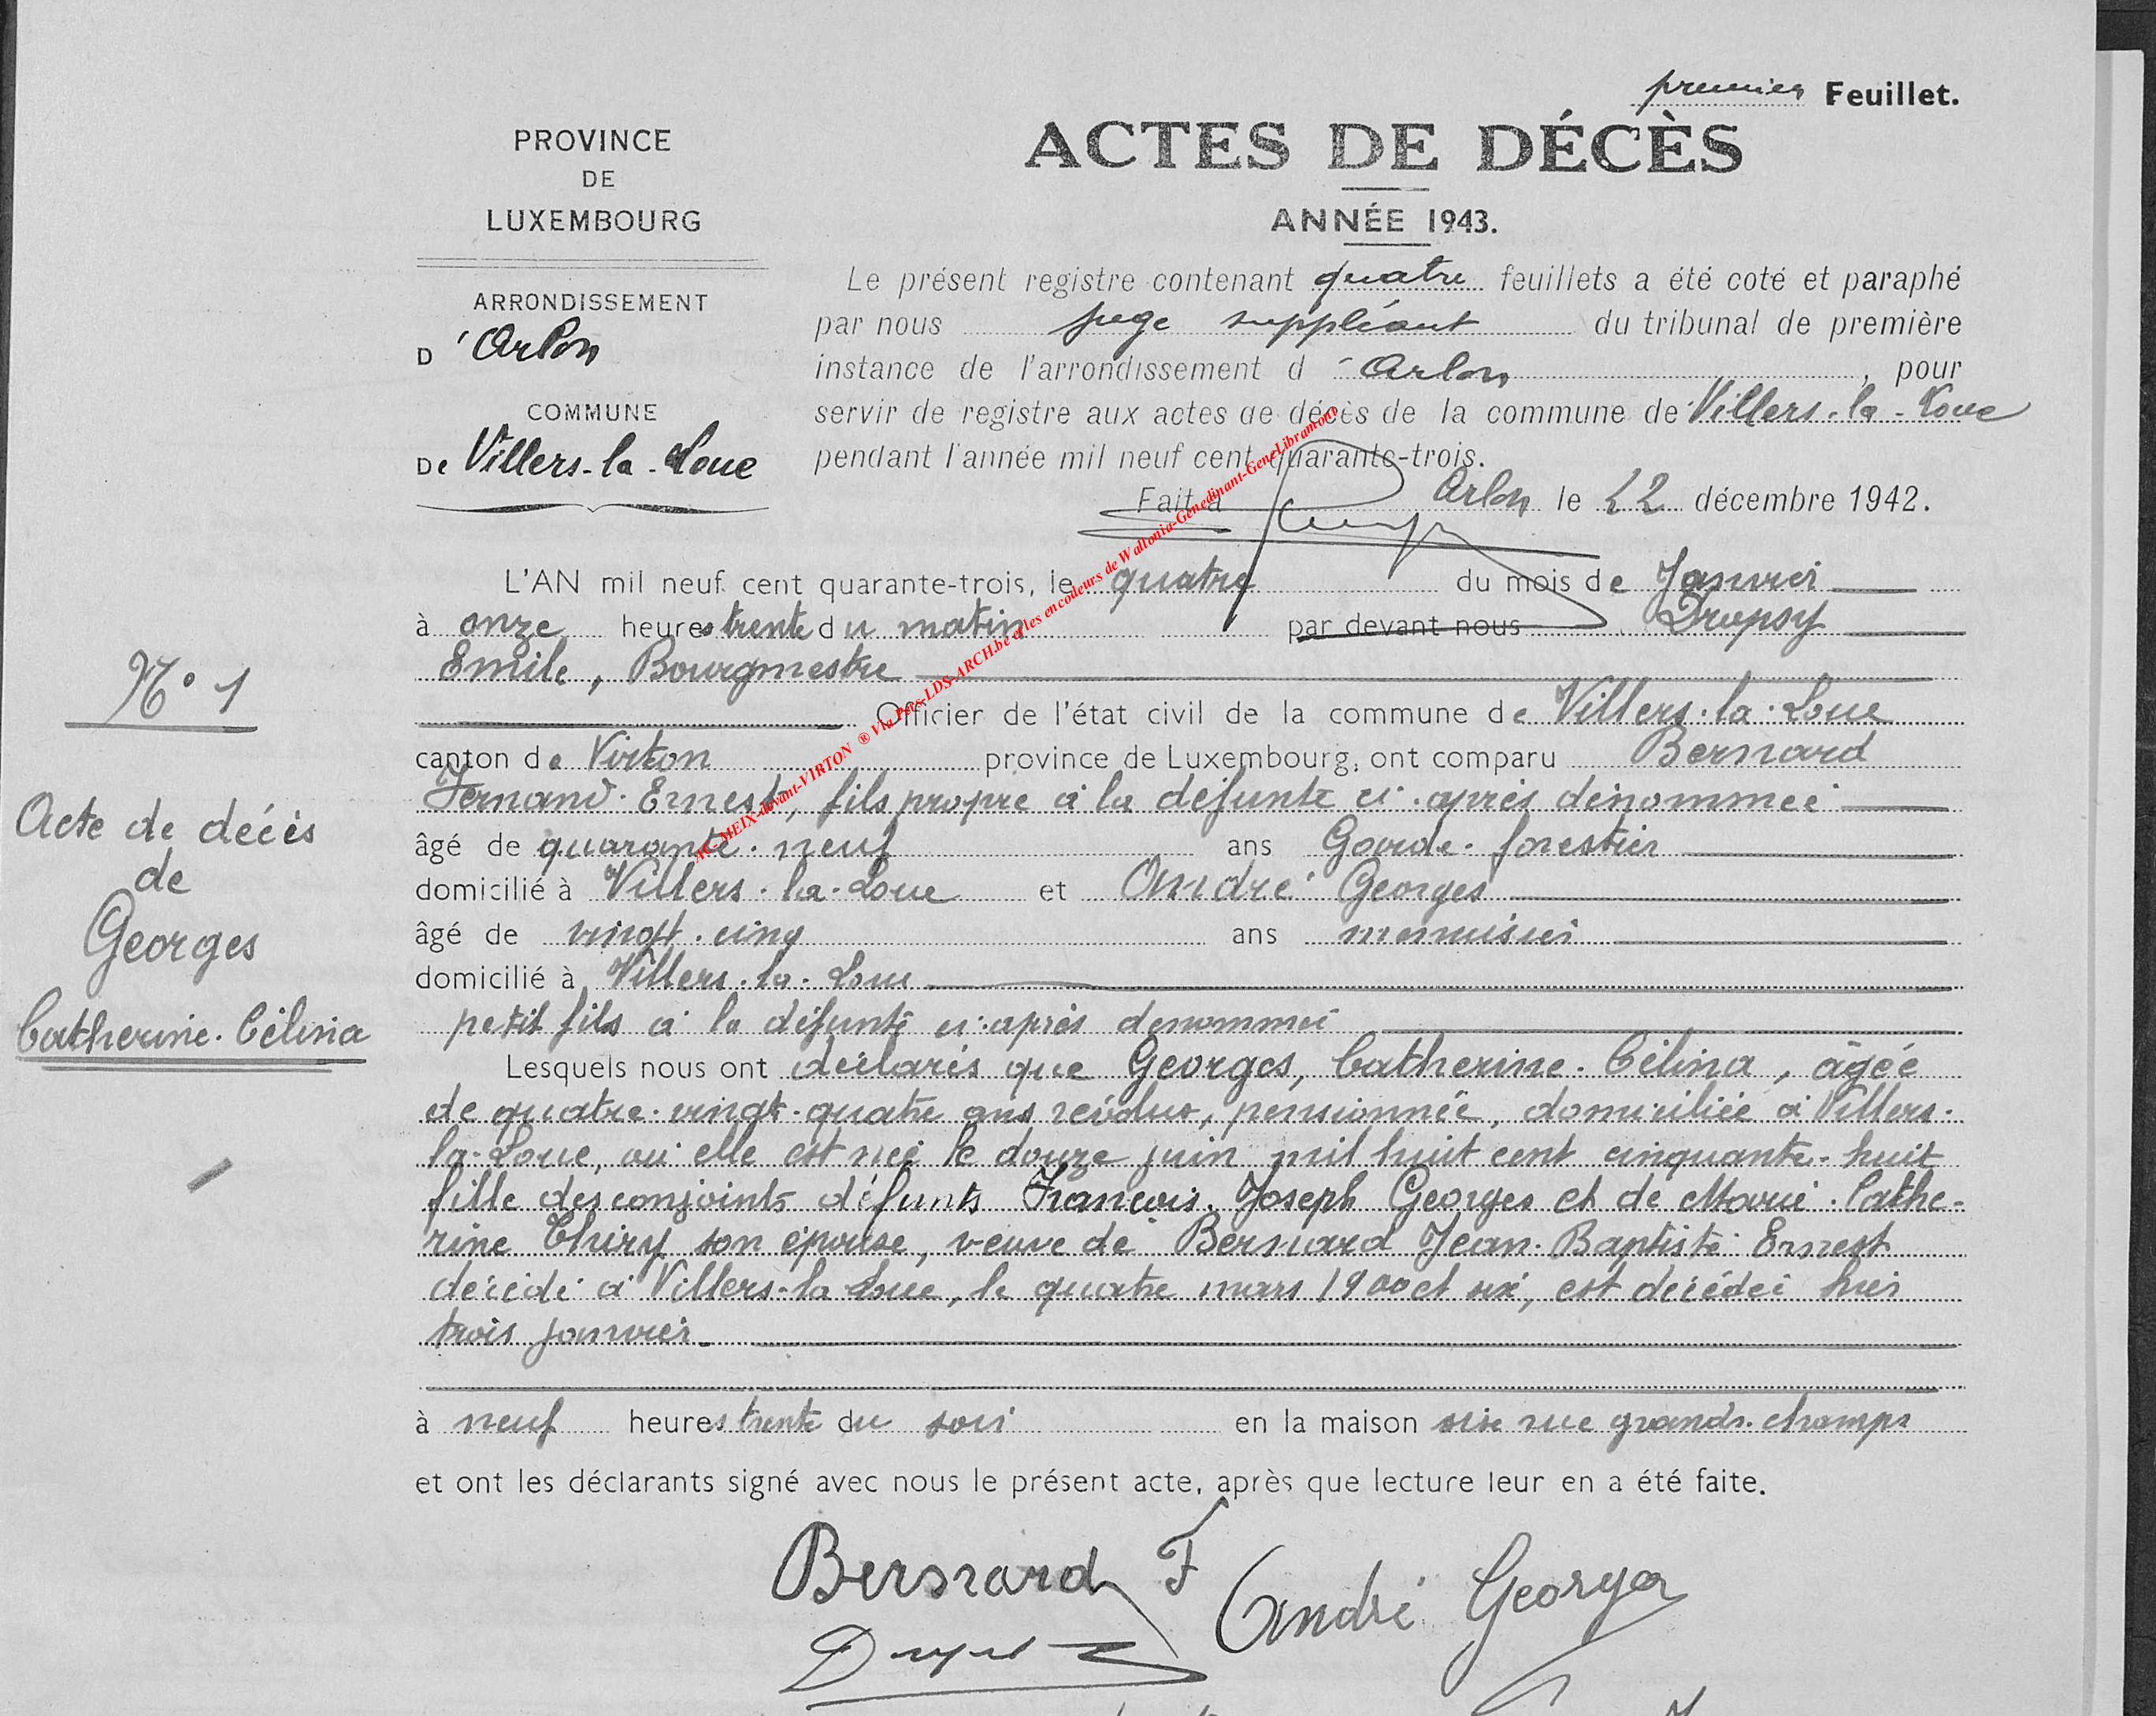 premier Feuillet.
PROVINCE
DE
LUXEMBOURG
ARRONDISSEMENT
D'Arlon
COMMUNE
De Villers-la-Loue
ACTES DE DÉCÈS
ANNÉE 1943.
Le présent registre contenant quatre feuillets a été coté et paraphé
par nous juge suppléant du tribunal de première
instance de l'arrondissement d'Arlon, pour
servir de registre aux actes de décès de la commune de Villers-la-Loue
pendant l'année mil neuf cent quarante-trois.
Fait à Arlon le 22 décembre 1942.
L'AN mil neuf cent quarante-trois, le quatre du mois de Janvier
à onze heures trente du matin par devant nous Drupsy
Emile, Bourgmestre
Officier de l'état civil de la commune de Villers-la-Loue
canton de Virton province de Luxembourg, ont comparu Bernard
Fernand-Ernest, fils propre à la défunte ci-après dénommée
âgé de quarante-neuf ans Garde-forestier
domicilié à Villers-la-Loue et André Georges
âgé de vingt-cinq ans menuisier
domicilié à Villers-la-Loue
petit fils à la défunte ci-après dénommé
Lesquels nous ont déclarés que Georges, Catherine-Célina, âgée
de quatre-vingt-quatre ans révolus, pensionnée, domiciliée à Villers-
la-Loue, où elle est née le douze juin mil huit cent cinquante-huit
fille des conjoints défunts François-Joseph Georges et de Marie-Cathe-
rine Thiry son épouse, veuve de Bernard Jean-Baptiste-Ernest
décédé à Villers-la-Loue, le quatre mars 1900 et six, est décédée hier
trois janvier
à neuf heures trente du soir en la maison sise rue grands-champs
et ont les déclarants signé avec nous le présent acte, après que lecture leur en a été faite.
Bernard F André Georges
N° 1
Acte de décès
de
Georges
Catherine-Célina
AC-MEIX-devant-VIRTON ® Via Pecs-LDS-ARCH.be et les encodeurs de Wallonia-Genedinant-GeneLibramont